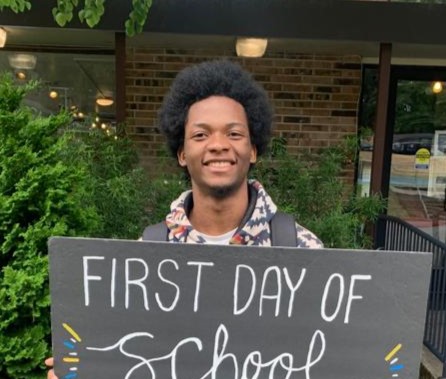 FIRST DAY OF
School